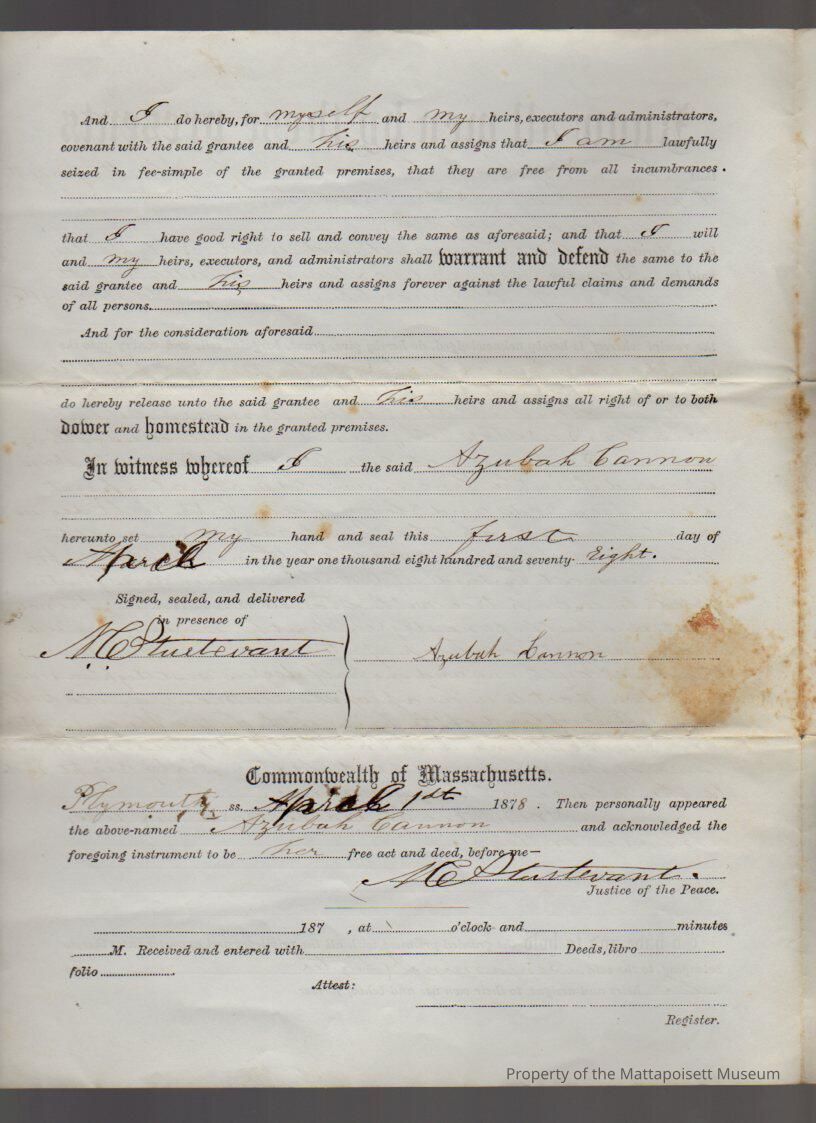 And I do hereby, for myself and my heirs, executors and administrators,
covenant with the said grantee and his heirs and assigns that I am lawfully
seized in fee-simple of the granted premises, that they are free from all incumbrances.
that I have good right to sell and convey the same as aforesaid; and that I will
and my heirs, executors, and administrators shall warrant and defend the same to the
said grantee and his heirs and assigns forever against the lawful claims and demands
of all persons.
And for the consideration aforesaid
do hereby release unto the said grantee and his heirs and assigns all right of or to both
dower and homestead in the granted premises.
In witness whereof I the said Azubah Cannon
hereunto set my hand and seal this first day of
April in the year one thousand eight hundred and seventy-Eight.
Signed, sealed, and delivered
in presence of
Sturtevant
Azubah Cannon
Commonwealth of Massachusetts.
Plymouth ss. April 1st 1878. Then personally appeared
the above-named Azubah Cannon and acknowledged the
foregoing instrument to be her free act and deed, before me—
Sturtevant.
Justice of the Peace.
187 , at o'clock and minutes
M. Received and entered with Deeds, libro
folio
Attest:
Register.
Property of the Mattapoisett Museum